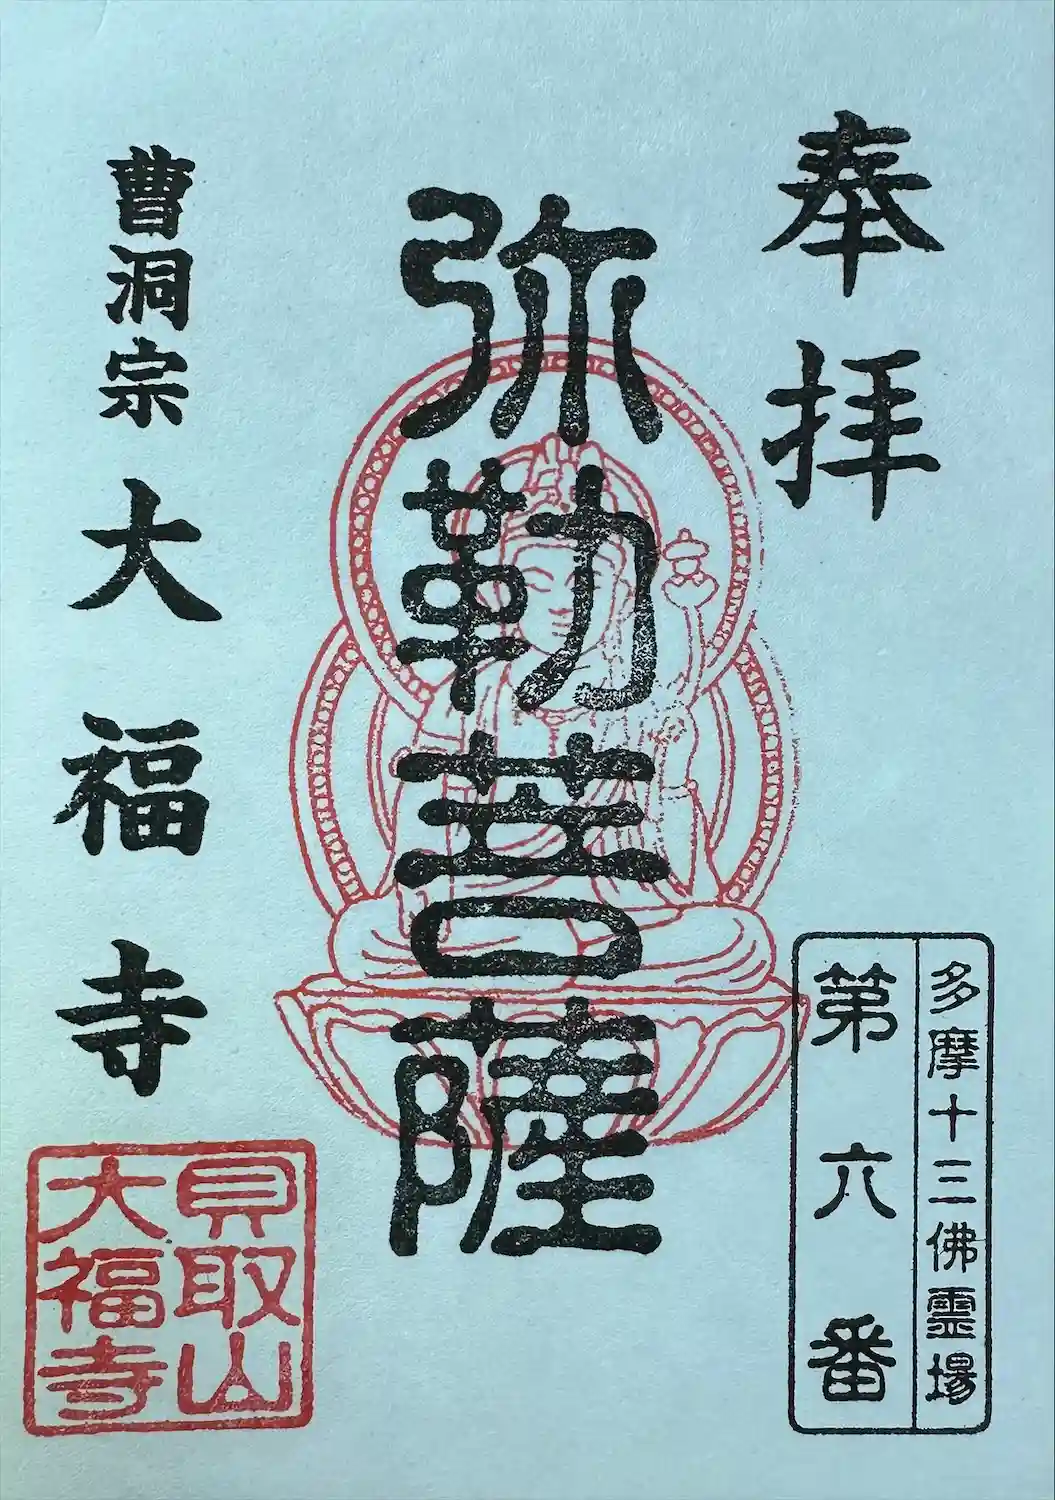 奉拝
多摩十三佛霊場
第六番
弥勒菩薩
曹洞宗大福寺
貝取山
大福寺